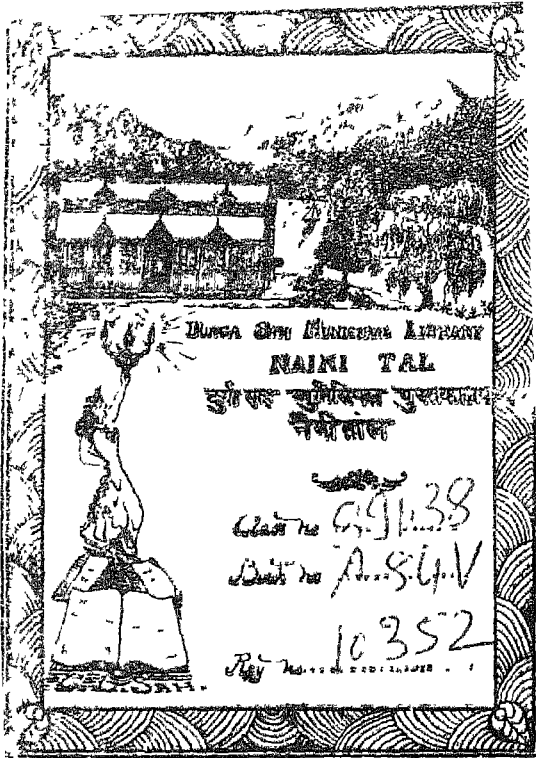 DURGA SAH MUNICIPAL LIBRARY
NAINI TAL
दुर्गा साह म्युनिसिपल पुस्तकालय
नैनीताल
Class no 891.38
Book no A84V
Reg no 10352